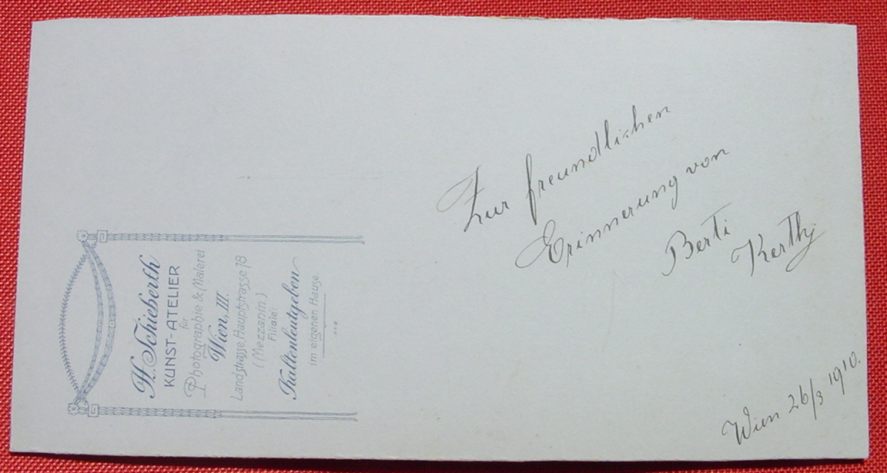 H. Schieberth
KUNST-ATELIER
für
Photographie & Malerei
Wien, III.
Landstrasse Hauptstrasse 78
(Mezzanin)
Filiale:
Kaltenleutgeben
im eigenen Hause
Zur freundlichen
Erinnerung von
Berti
Kerthy
Wien 26/3 1910.